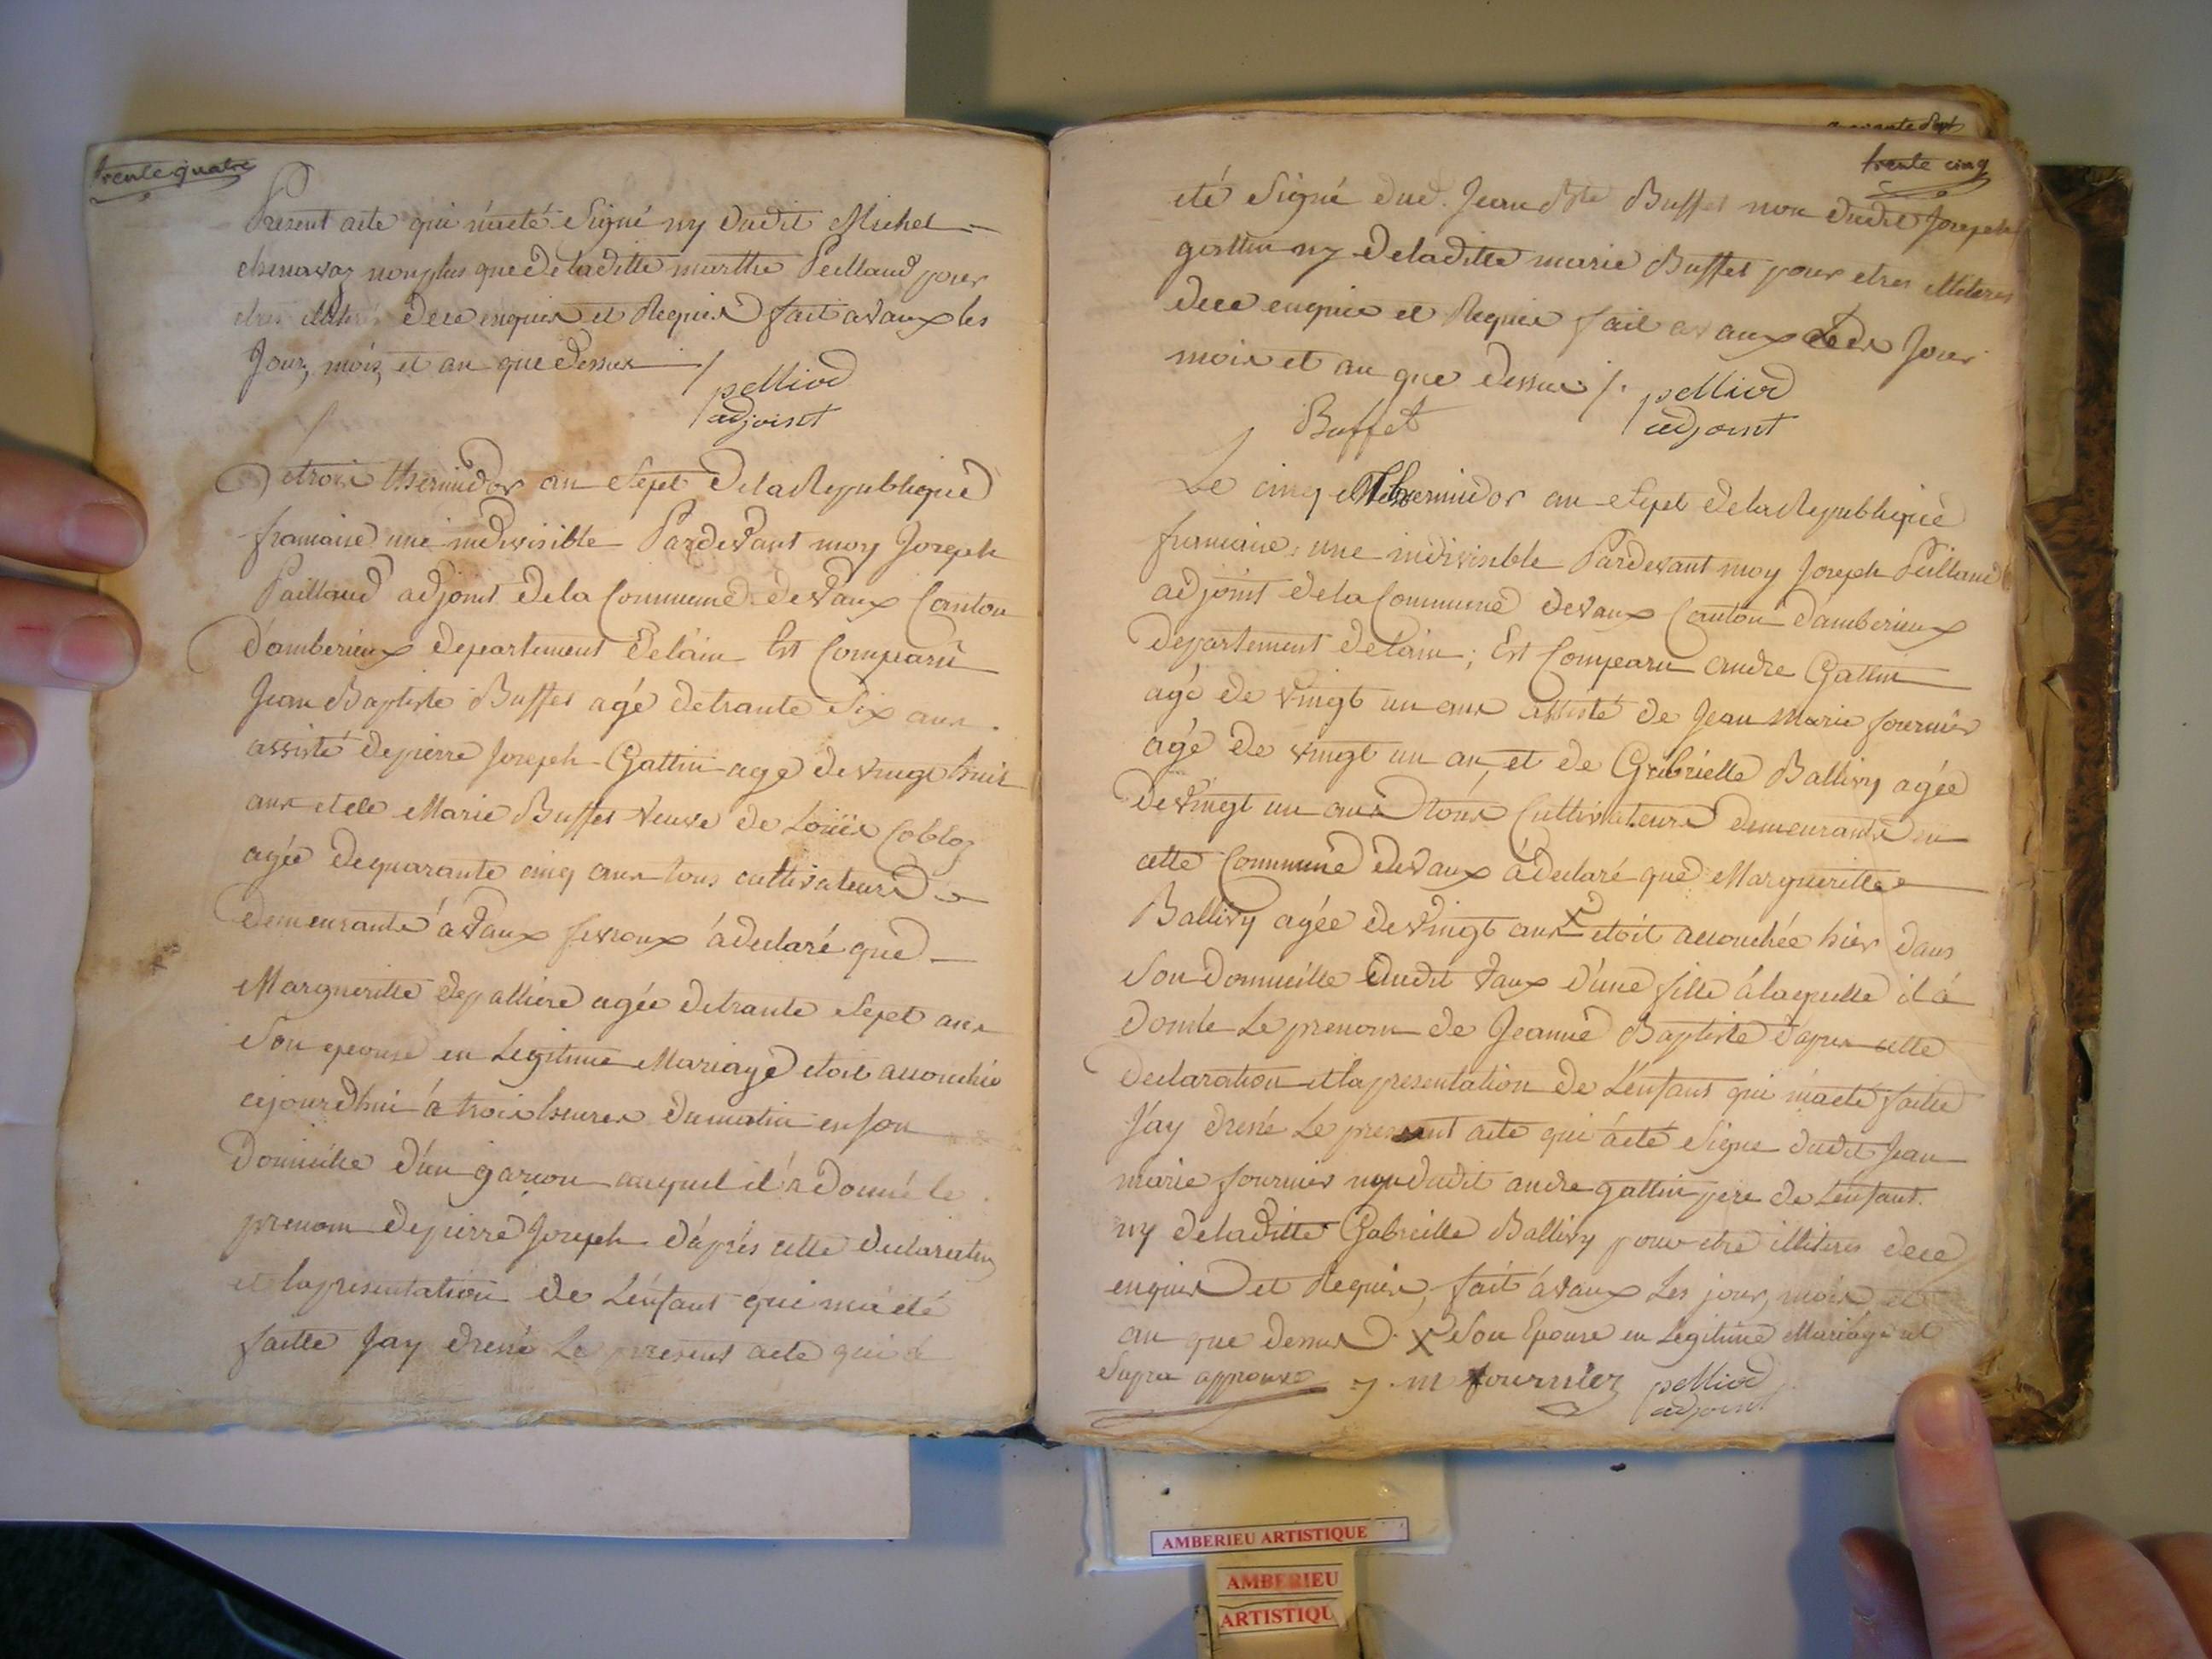 trente quatre
Present acte qui n'á eté Signé ny dudit Michel
chenavaz non plus que de laditte marthe Peillaud pour
etres illiterés de ce enquis et Requis fait a vaux les
Jour, mois, et an que dessus
pelliod
adjoint
Le trois thermidor an Sept de la Republique
francaise une indivisible Pardevant moy Joseph
Paillaud adjoint de la Commune de vaux Canton
d'amberieux departement de l'ain Est Comparu
Jean Baptiste Buffet agé de trante Six ans
assisté de pierre Joseph Gattin agé de vingt huit
ans et de Marie Buffet veuve de Loüis
agée de quarante cinq ans tous cultivateurs
demeurants á vaux fevroux á declaré que
Margueritte depalliere agée de trante Sept ans
Son epouse en Legitime Mariage etoit accouchée
cejourdhui á trois heures du matin en son
Domicile d'un garcon auquel il a donné le
prenom de pierre Joseph d'aprés cette declaration
et la presentation de L'enfant qui m'á eté
faitte Jay dressé Le present acte qui á
trente cinq
eté Signé dud. Jean Bte Buffet non dudit Joseph
gattin ny de laditte marie Buffet pour etres illiteres
de ce enquis et Requis fait a vaux Jour
mois et an que dessus
pelliod
Buffet
adjoint
Le cinq thermidor an Sept de la Republique
francaise, une indivisible Pardevant moy Joseph Peillaud
adjoint de la Commune de vaux Canton d'amberieux
departement de l'ain; Est Comparu andre Gattin
agé de vingt un ans assisté de Jean Marie fournier
agé de vingt un an, et de Gabrielle Ballivy agée
de vingt un ans tous Cultivateurs demeurants en
cette Commune de vaux á declaré que Margueritte
Ballivy agée de vingt ans X etoit accouchée hier dans
Son domicille audit vaux d'une fille á laquelle il á
donné Le prenom de Jeanne Baptiste d'apres cette
declaration et la presentation de L'enfant qui m'a eté faitte
J'ay dressé Le present acte qui á eté Signe dudit Jean
marie fournier non dudit andre gattin pere de L'enfant.
ny de laditte Gabrielle Ballivy pour etre illiteres de ce
enquis et Requis, fait á vaux Les jour, mois et
an que dessus. X Son Epouse en Legitime Mariage ut
Supra approuvé
j. m fournier
pelliod
adjoint
AMBERIEU ARTISTIQUE
AMBERIEU
ARTISTIQU